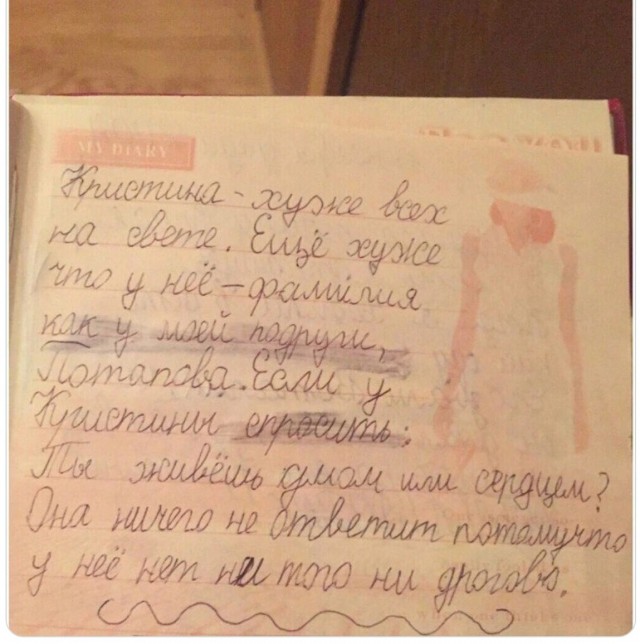 MY DIARY
Кристина - хуже всех
на свете. Ещё хуже
что у неё - фамилия
как у моей подруги,
Потапова. Если у
Кристины спросить:
Ты живёшь умом или сердцем?
Она ничего не ответит потомучто
у неё нет ни того ни дрогова.